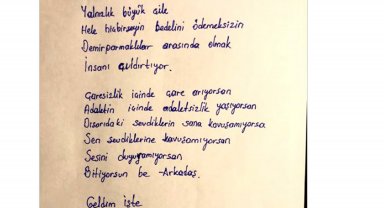 Yalnızlık büyük çile
Hele hiçbirşeyin bedelini ödemeksizin
Demirparmaklıklar arasında olmak
İnsanı çıldırtıyor.
Çaresizlik içinde çare arıyorsan
Adaletin içinde adaletsizlik yaşıyorsan
Dışarıdaki sevdiklerin sana kavuşamıyorsa
Sen sevdiklerine kavuşamıyorsan
Sesini duyuyamıyorsan
Bitiyorsun be -Arkadaş.
Geldim işte